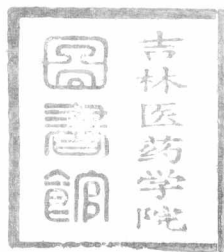 吉林医药学院
圕書館